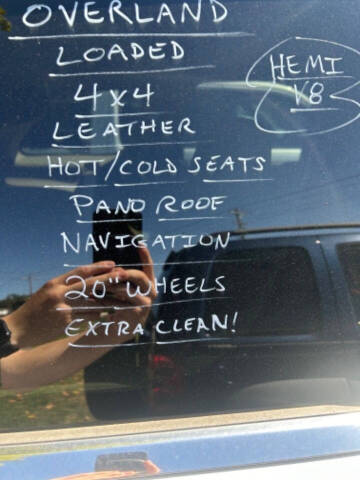 OVERLAND
LOADED
HEMI
V8
4x4
LEATHER
HOT/COLD SEATS
PANO ROOF
NAVIGATION
20" WHEELS
EXTRA CLEAN!